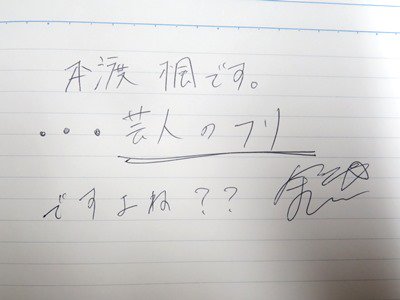 本渡 楓です。
・・・芸人のフリ
ですよね??